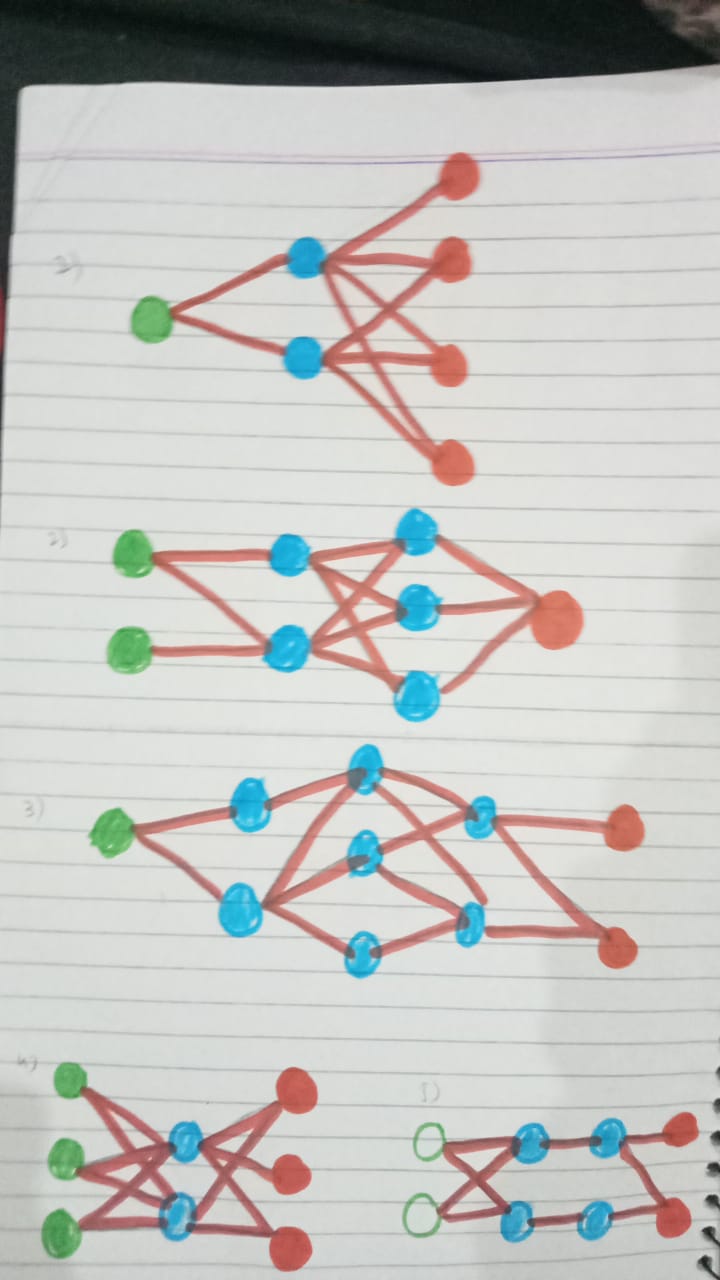 2)
3)
4)
5)